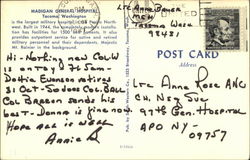 MADIGAN GENERAL HOSPITAL
Tacoma, Washington
is the largest military hospital in the Pacific North-
west. Built in 1944, the completely modern installa-
tion has facilities for 1500 bed patients. It also
provides outpatient service for active and retired
military personnel and their dependents. Majestic
Mt. Rainier in the background.
Hi - Nothing new Col W
is on Tdy 75 Sem-
Dottie Evanson retires
31 Oct - Sodoro Col. Ball
Col Breeson sends his
best - Donna is fine now
Hope all is well
Annie
Ltc Anne
MGH
Tacoma Wash
98431
POST CARD
Address
Ltc Anne Rose ANC
Ch. Nsg Svc
97th Gen. Hospital
APO NY
09757